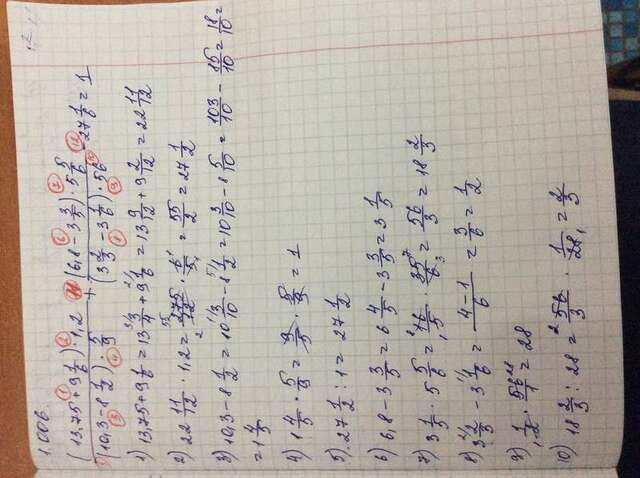 1.006.
((13,75 + 9 1/6) · 1,2) / ((10,3 − 8 1/2) · 5/9) + ((6,8 − 3 3/5) · 5 5/6) / ((3 2/3 − 3 1/6) · 56) − 27 1/6 = 1
1) 13,75 + 9 1/6 = 13 3/4 + 9 1/6 = 13 9/12 + 9 2/12 = 22 11/12
2) 22 11/12 · 1,2 = 275/12 · 6/5 = 55/2 = 27 1/2
3) 10,3 − 8 1/2 = 10 3/10 − 8 1/2 = 10 3/10 − 8 5/10 = 103/10 − 85/10 = 18/10 =
= 1 4/5
4) 1 4/5 · 5/9 = 9/5 · 5/9 = 1
5) 27 1/2 : 1 = 27 1/2
6) 6,8 − 3 3/5 = 6 4/5 − 3 3/5 = 3 1/5
7) 3 1/5 · 5 5/6 = 16/5 · 35/6 = 56/3 = 18 2/3
8) 3 2/3 − 3 1/6 = (4−1)/6 = 3/6 = 1/2
9) 1/2 · 56/1 = 28
10) 18 2/3 : 28 = 56/3 · 1/28 = 2/3